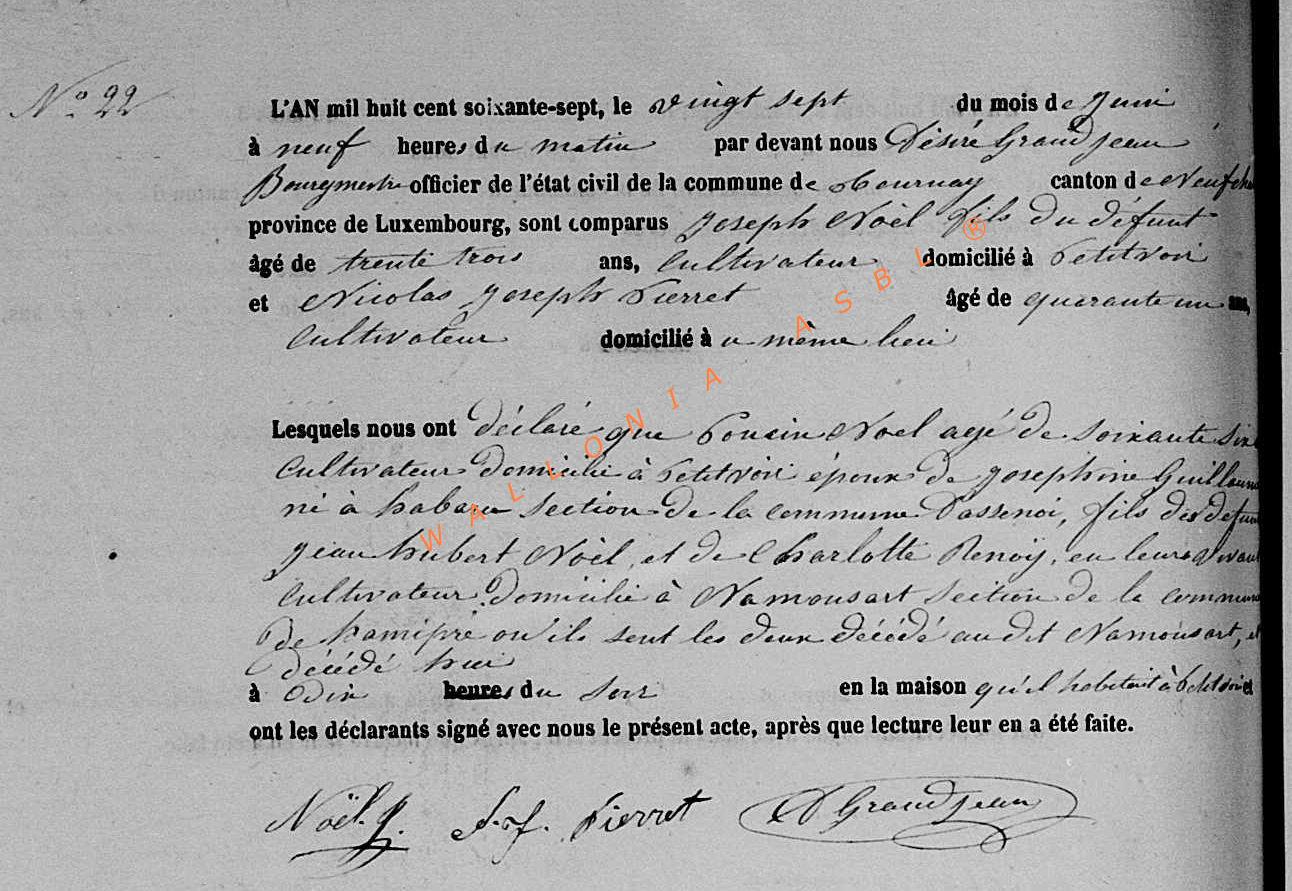 No 22
L'AN mil huit cent soixante-sept, le vingt sept du mois de Juin
à neuf heures du matin par devant nous Désiré Grandjean
Bourgmestre officier de l'état civil de la commune de Tournay canton de Neufchu
province de Luxembourg, sont comparus Joseph Noèl fils du défunt
âgé de trente trois ans, Cultivateur domicilié à Petitvoir
et Nicolas Joseph Pierret âgé de quarante un ans,
Cultivateur domicilié à u même lieu
Lesquels nous ont déclaré que Noel agé de soixante six
Cultivateur domicilié à Petitvoir époux de Josephine Guillaume
né à habaru section de la commune Dassenoi, fils des defun
Jean hubert Noèl, et de Charlotte Renoÿ, en leurs vivant
Cultivateur domicilié à Namousart section de la commune
de hamipré ou ils sent les deux décédé au dit Namousart, et
décédé hui
à dix heures du soir en la maison qu'il habitait à Petitvoir et
ont les déclarants signé avec nous le présent acte, après que lecture leur en a été faite.
Noël. J. N. J. Pierret D Grandjean
WALLONIA ASBL ®